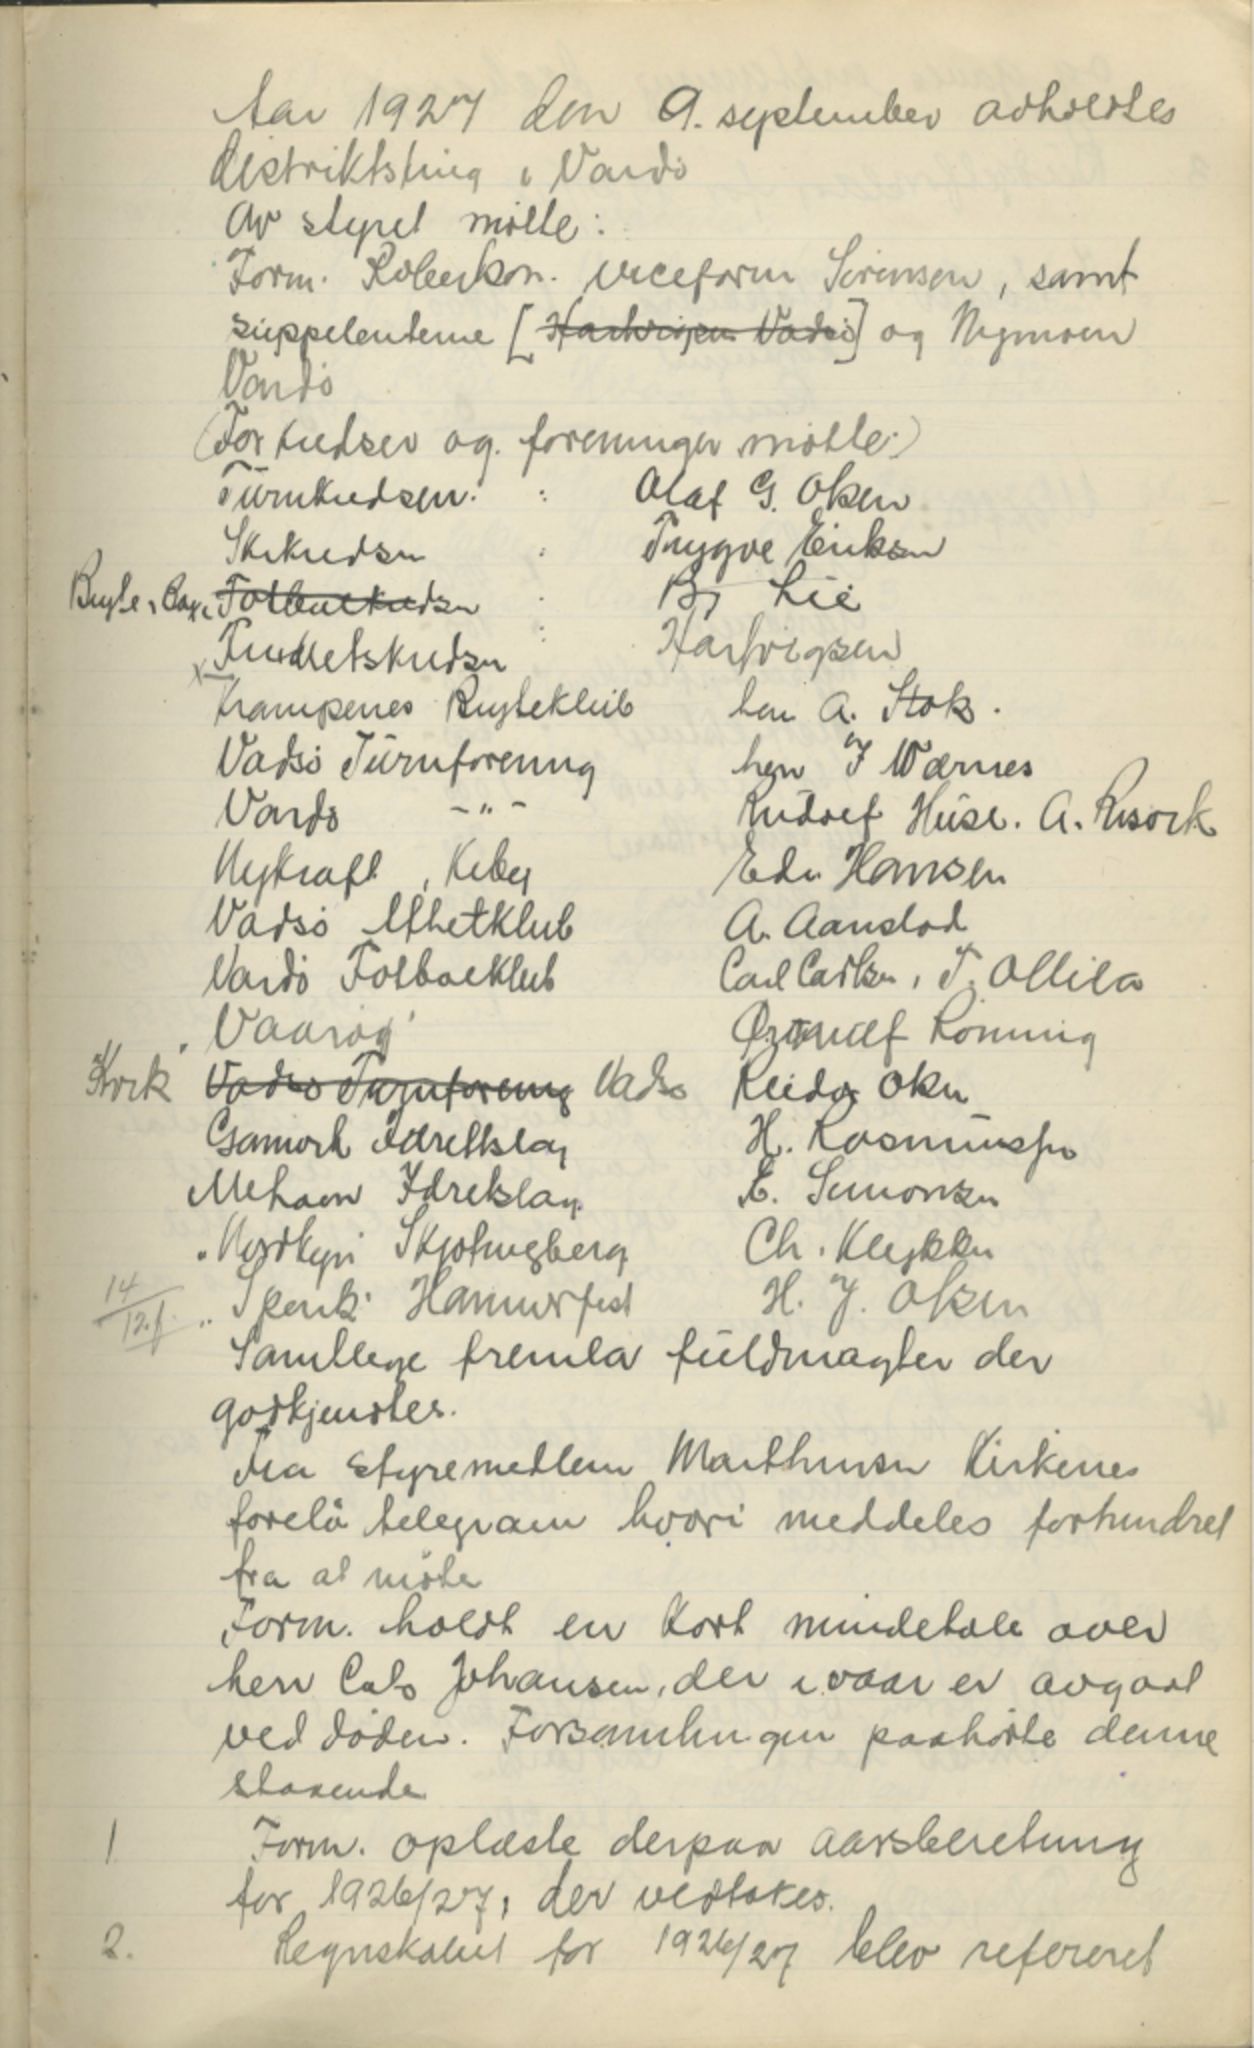 Aar 1927 den 9. september avholdtes
distriktsting i Vardö
Av styret mötte:
Form. Robertson. viceform Sörensen, samt
suppelenterne [Hartvigsen Vadsö] og Nymoen
Vardö
(For kredser og. foreninger mötte:)
Turnkredsen : Olaf G. Olsen
Skikredsen : Trygve Eriksen
Bryte, Box, Fotballkredsen : Bj Lie
Friidretskredsen : Hartvigsen
Krampenes Bryteklub herr A. Stok.
Vadsö Turnforening herr J Wærnes
Vardö -"- Rudolf Huse. A. Risvik
Nykraft, Kiby Edv Hansen
Vadsö Athletklub A. Aanstad
Vardö Fotbalklub Carl Carlsen, T. Ollila
Vaarog Ronning
Kvik Vadsö Turnforening Vadsö Reidar Olsen
Gamvik Idrettslag H. Rasmussen
Mehavn Idretslag. E. Simonsen
Nordkyn Skjötningberg Ch. Klykken
14/12.f. „ Sperik Hammerfest H. J. Olsen
Samtlege fremla fuldmagter der
godkjendtes.
Fra styremedlem Marthinsen Kirkenes
forelå telegram hvori meddeles forhindret
fra at möte
Form. holdt en kort mindetale over
herr Johansen, der i vaar er avgaat
ved döden. Forsamlingen paahörte denne
staaende
1 Form. oplæste derpaa aarsberetning
for 1926/27, der vedtokes.
2. Regnskabet for 1926/27 blev referert